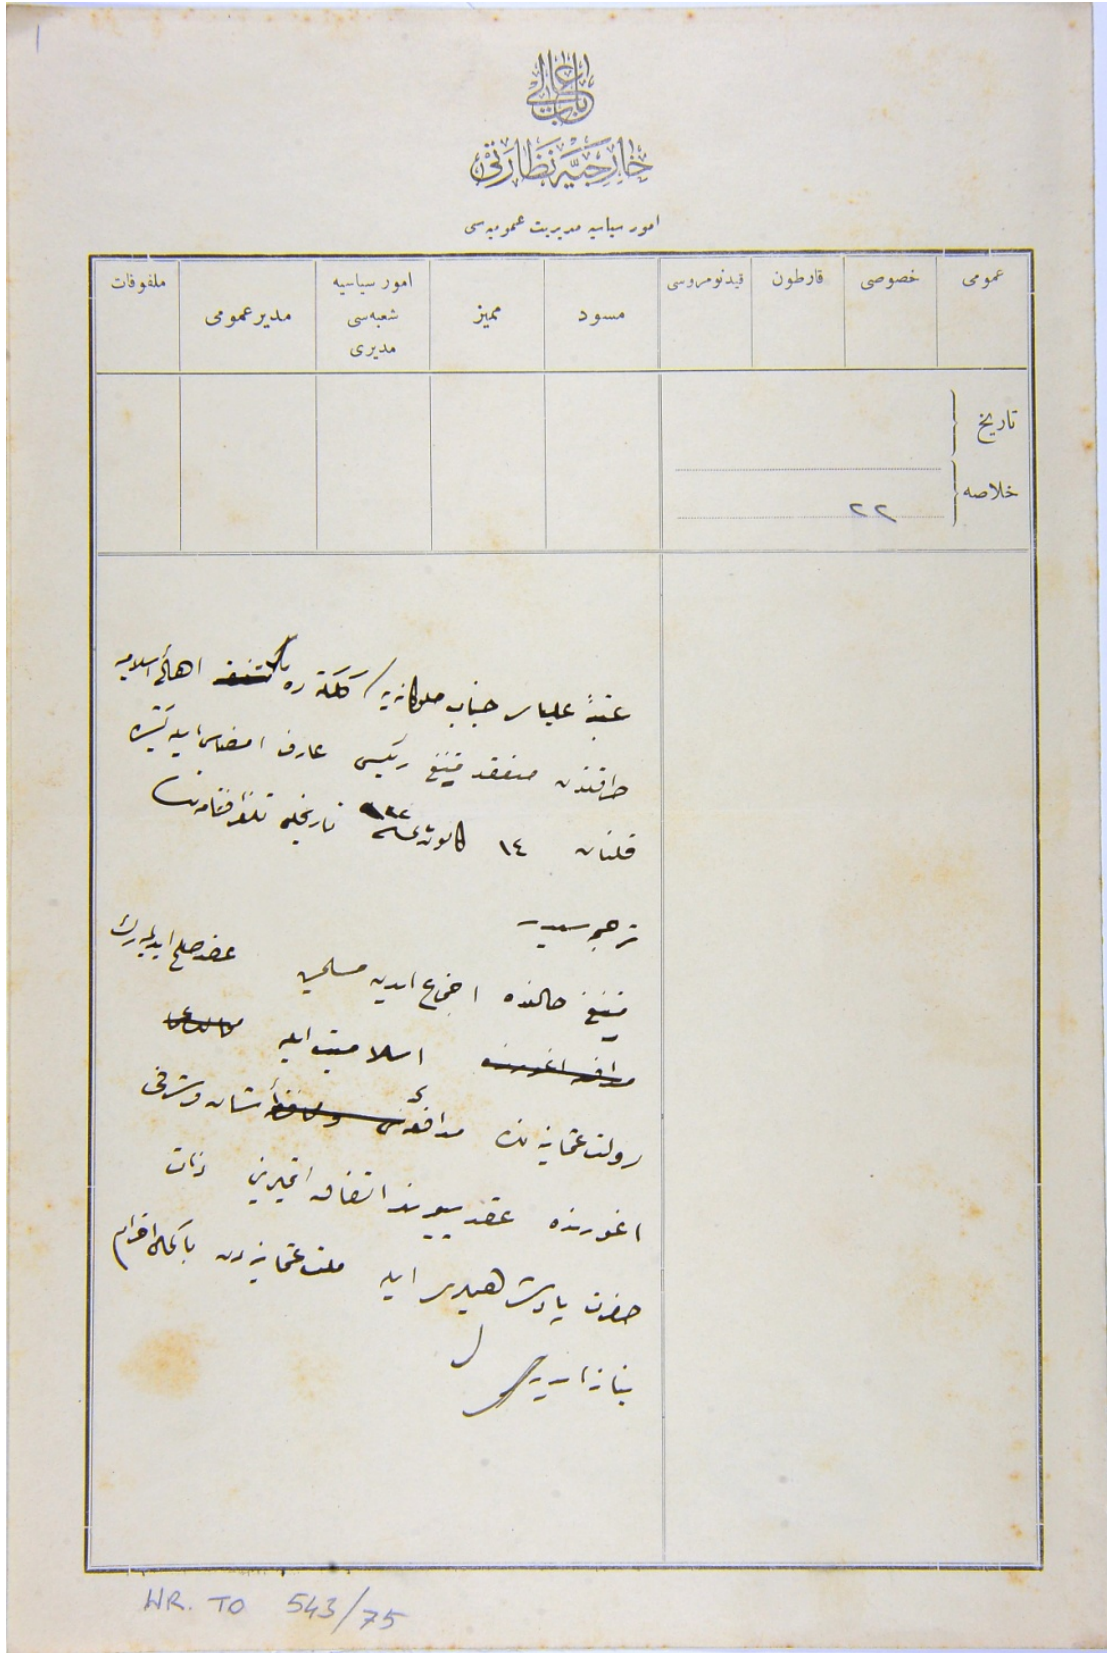 باب عالی
خارجیه نظارتی
امور سیاسیه مدیریت عمومیه‌سی
عمومی خصوصی قارطون قیدنومروسی مسود ممیز امور سیاسیه شعبه‌سی مدیری مدیر عمومی ملفوفات
تاریخ
خلاصه ٢٢
عتبهٔ علیای جناب ملوکانه‌یه کلکته ده اهالئ اسلامیه
طرفندن منعقد میتینغ رئیسی عارف امضاسیله کشیده
قلنان ١٤ تاریخلی تلغرافنامه‌نك
ترجمه‌سیدر
میتینغ حالنده اجتماع ایدن مسلمین عقد صلح ایدیله‌رك
اسلامیت ایله
دولت عثمانیه‌نك مدافعهٔ شان و شرفی
اغورنده عقد پیوند اتفاق ایتمه‌سنی ذات
حضرت پادشاهیدن ایله ملت عثمانیه‌دن باکمال احترام
نیاز ایدر
HR. TO 543/75